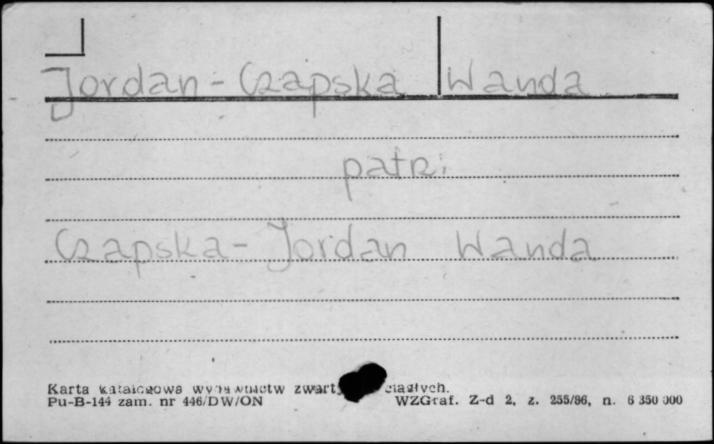 Jordan-Czapska Wanda
patrz:
Czapska-Jordan Wanda
Karta katalogowa wydawnictw zwart ciągłych.
Pu-B-144 zam. nr 446/DW/ON WZGraf. Z-d 2, z. 255/86, n. 6 350 000